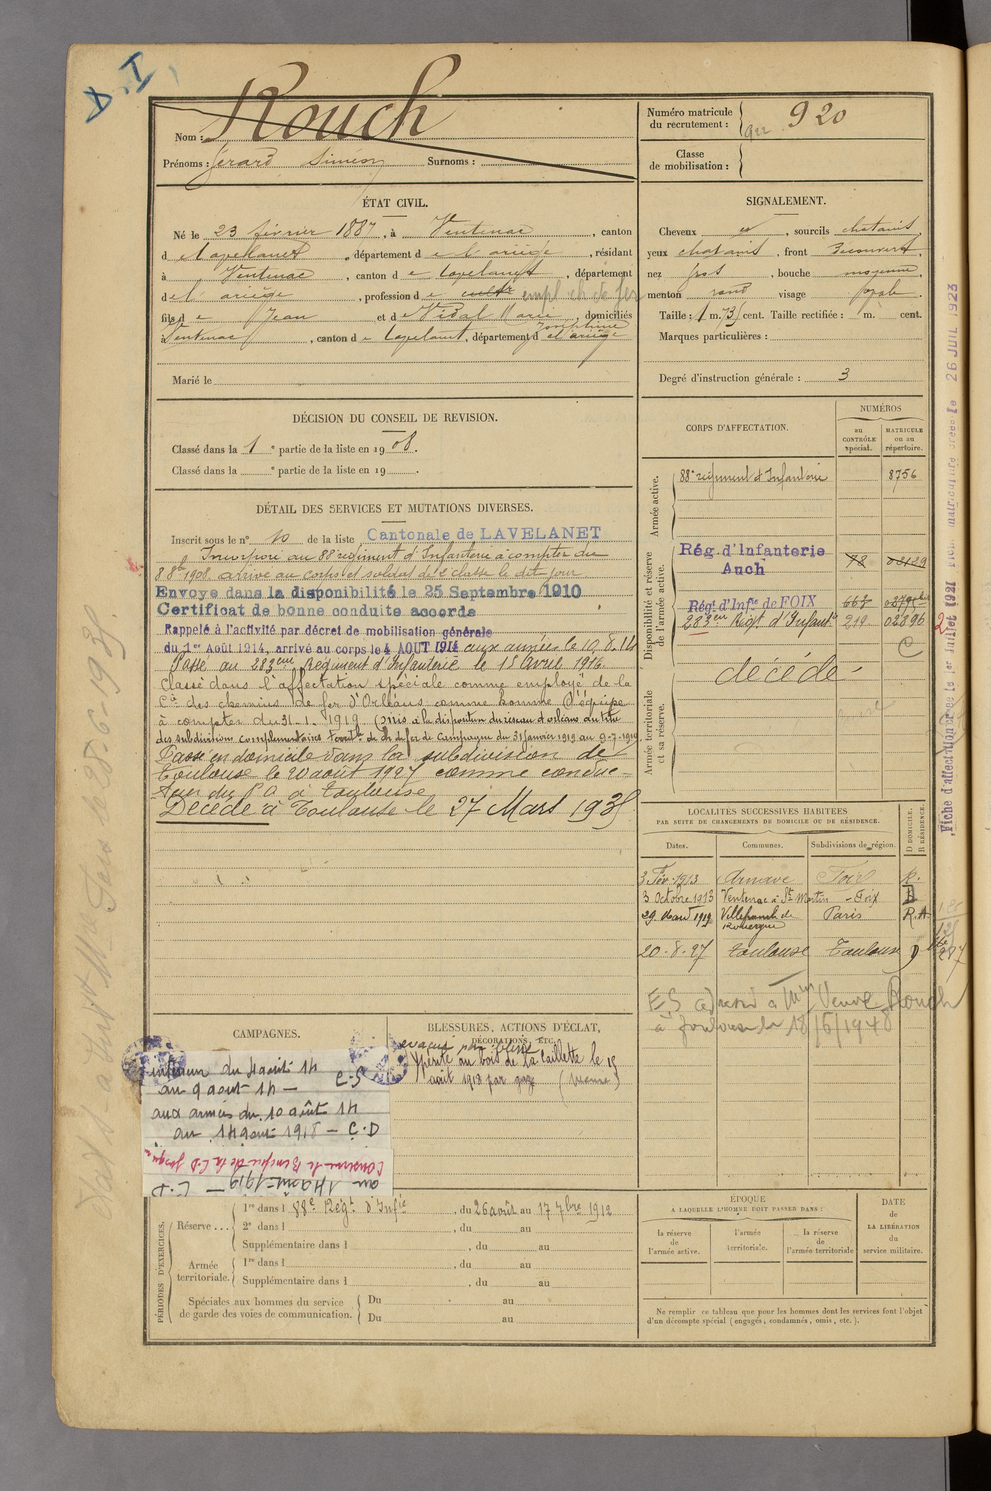 D. I
Nom : Rouch
Prénoms : Gérard Siméon Surnoms :
Numéro matricule du recrutement : 920
Classe de mobilisation :
ÉTAT CIVIL.
Né le 23 février 1887, à Ventenac, canton
d e Lavelanet, département d e l'ariège, résidant
à Ventenac, canton d e Lavelanet, département
d e l'ariège, profession d e cultr empl ch de fer
fils d e Jean et d e Vidal Marie Joséphine, domiciliés
Ventenac, canton d e Lavelanet, département d e l'ariège
Marié le
SIGNALEMENT.
Cheveux et, sourcils chatains,
yeux chatains, front découvert,
nez gros, bouche moyenne,
menton rond visage ovale.
Taille : 1 m. 73 cent. Taille rectifiée : m. cent.
Marques particulières :
Degré d'instruction générale : 3
DÉCISION DU CONSEIL DE REVISION.
Classé dans la 1e partie de la liste en 1908.
Classé dans la e partie de la liste en 19 .
DÉTAIL DES SERVICES ET MUTATIONS DIVERSES.
Inscrit sous le n° 10 de la liste Cantonale de LAVELANET
Incorporé au 88e régiment d'Infanterie à compter du
8 8bre 1908 arrivé au corps et soldat de 2e classe le dit jour
Envoyé dans la disponibilité le 25 Septembre 1910
Certificat de bonne conduite accordé
Rappelé à l'activité par décret de mobilisation générale
du 1er Août 1914, arrivé au corps le 4 AOUT 1914 aux armées le 10.8.14
Passé au 283eme Régiment d'Infanterie le 15 Avril 1916.
Classé dans l'affectation spéciale comme employé de la
Cie des chemins de fer d'Orléans comme homme d'équipe
à compter du 31-1-1919 (mis à la disposition du réseau d'orléans au titre
des subdivisions complementaires territles de ch. de fer de Campagne du 31 janvier 1919 au 9-7-1919
Passé en domicile dans la subdivision de
Toulouse le 20 août 1927 comme conduc-
teur du P.O à Toulouse
Décédé à Toulouse le 27 Mars 1935
CORPS D'AFFECTATION.
NUMÉROS
au CONTRÔLE spécial.
MATRICULE ou au répertoire.
Armée active.
88e régiment d'Infanterie 8756
Disponibilité et réserve de l'armée active.
Rég. d'Infanterie
Auch 78
Régt d'Infie de FOIX 668
283eme Régt d'Infantie 219 02896
C
Armée territoriale et sa réserve.
décédé
LOCALITÉS SUCCESSIVES HABITÉES
PAR SUITE DE CHANGEMENTS DE DOMICILE OU DE RÉSIDENCE.
Dates. Communes. Subdivisions de région. D DOMICILE. R RÉSIDENCE.
3 Fév. 1913 Arnave Foix R.
3 Octobre 1913 Ventenac à St Martin - Foix D
29 Aout 1919 Villefranche de Rouergue Paris R.A
20-8-27 Toulouse Toulouse D
ES adressé à Mme Veuve Rouch
à Toulouse le 18/6/1948
CAMPAGNES.
intérieur du 4 août 14
au 9 août 14 — C-S
aux armées du 10 août 14
au 14 août 1918 — C.D
Conserve le Bénéfice de la C.D jusqu'
au 14 août 1919 — C.D
BLESSURES, ACTIONS D'ÉCLAT,
DÉCORATIONS, ETC.
évacué non blessé
Ypérité au bois de la Caillette le 15
août 1918 par gaz
PÉRIODES D'EXERCICES.
Réserve ... 1re dans l 88e Régt d'Infie, du 26 août au 17 7bre 1912
2e dans l , du au
Supplémentaire dans l , du au
Armée territoriale. 1re dans l , du au
Supplémentaire dans l , du au
Spéciales aux hommes du service de garde des voies de communication. Du au
Du au
ÉPOQUE
À LAQUELLE L'HOMME DOIT PASSER DANS :
la réserve de l'armée active.
l'armée territoriale.
la réserve de l'armée territoriale
DATE DE LA LIBÉRATION du service militaire.
Ne remplir ce tableau que pour les hommes dont les services font l'objet
d'un décompte spécial (engagés, condamnés, omis, etc.).
Fiche d'affectation créée le 1er Juillet 1921 Fiche matriculaire créée le 26 JUIL 1923